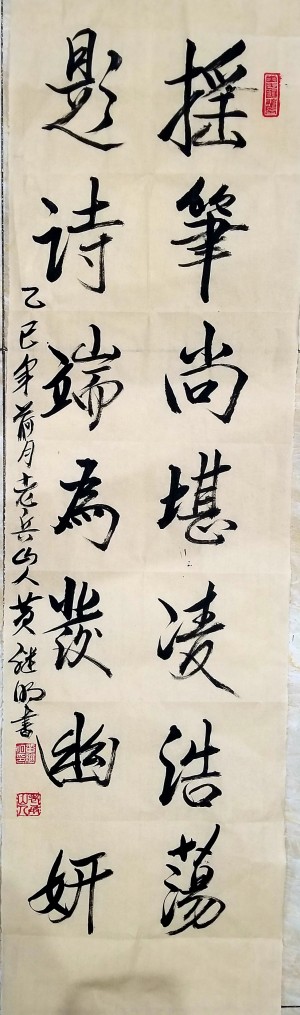 摇筆尚堪凌浩蕩
題詩端為發幽妍
乙巳年前月老兵山人黄継明書